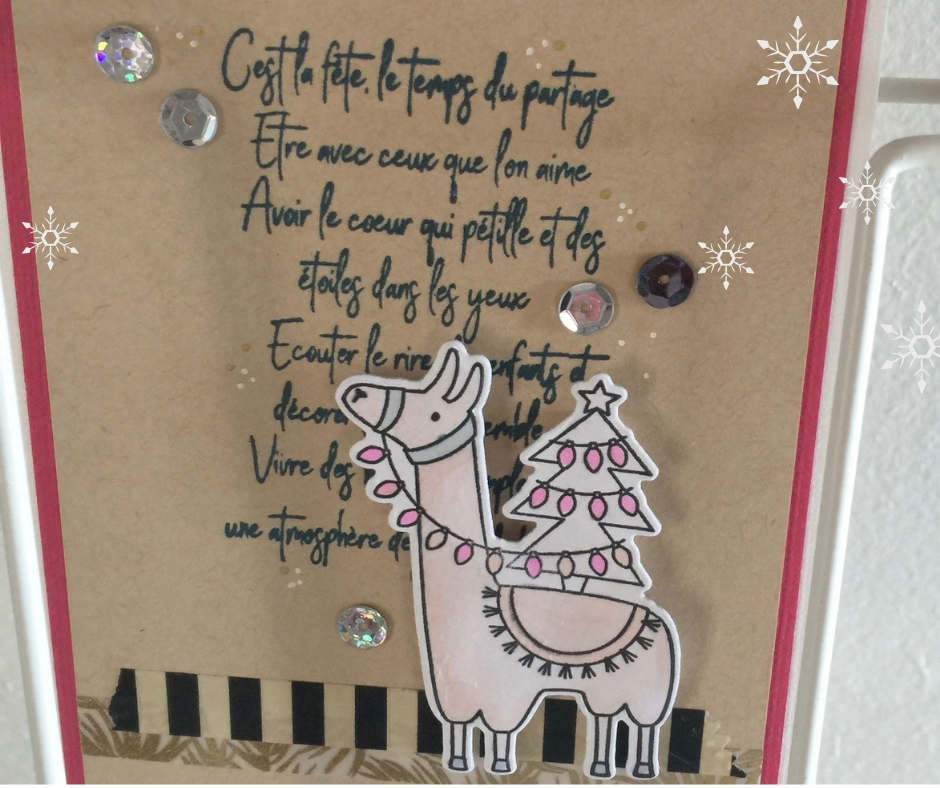 C'est la fête, le temps du partage
Etre avec ceux que l'on aime
Avoir le coeur qui pétille et des
étoiles dans les yeux
Ecouter le rire enfants et
Vivre des
une atmosphère de